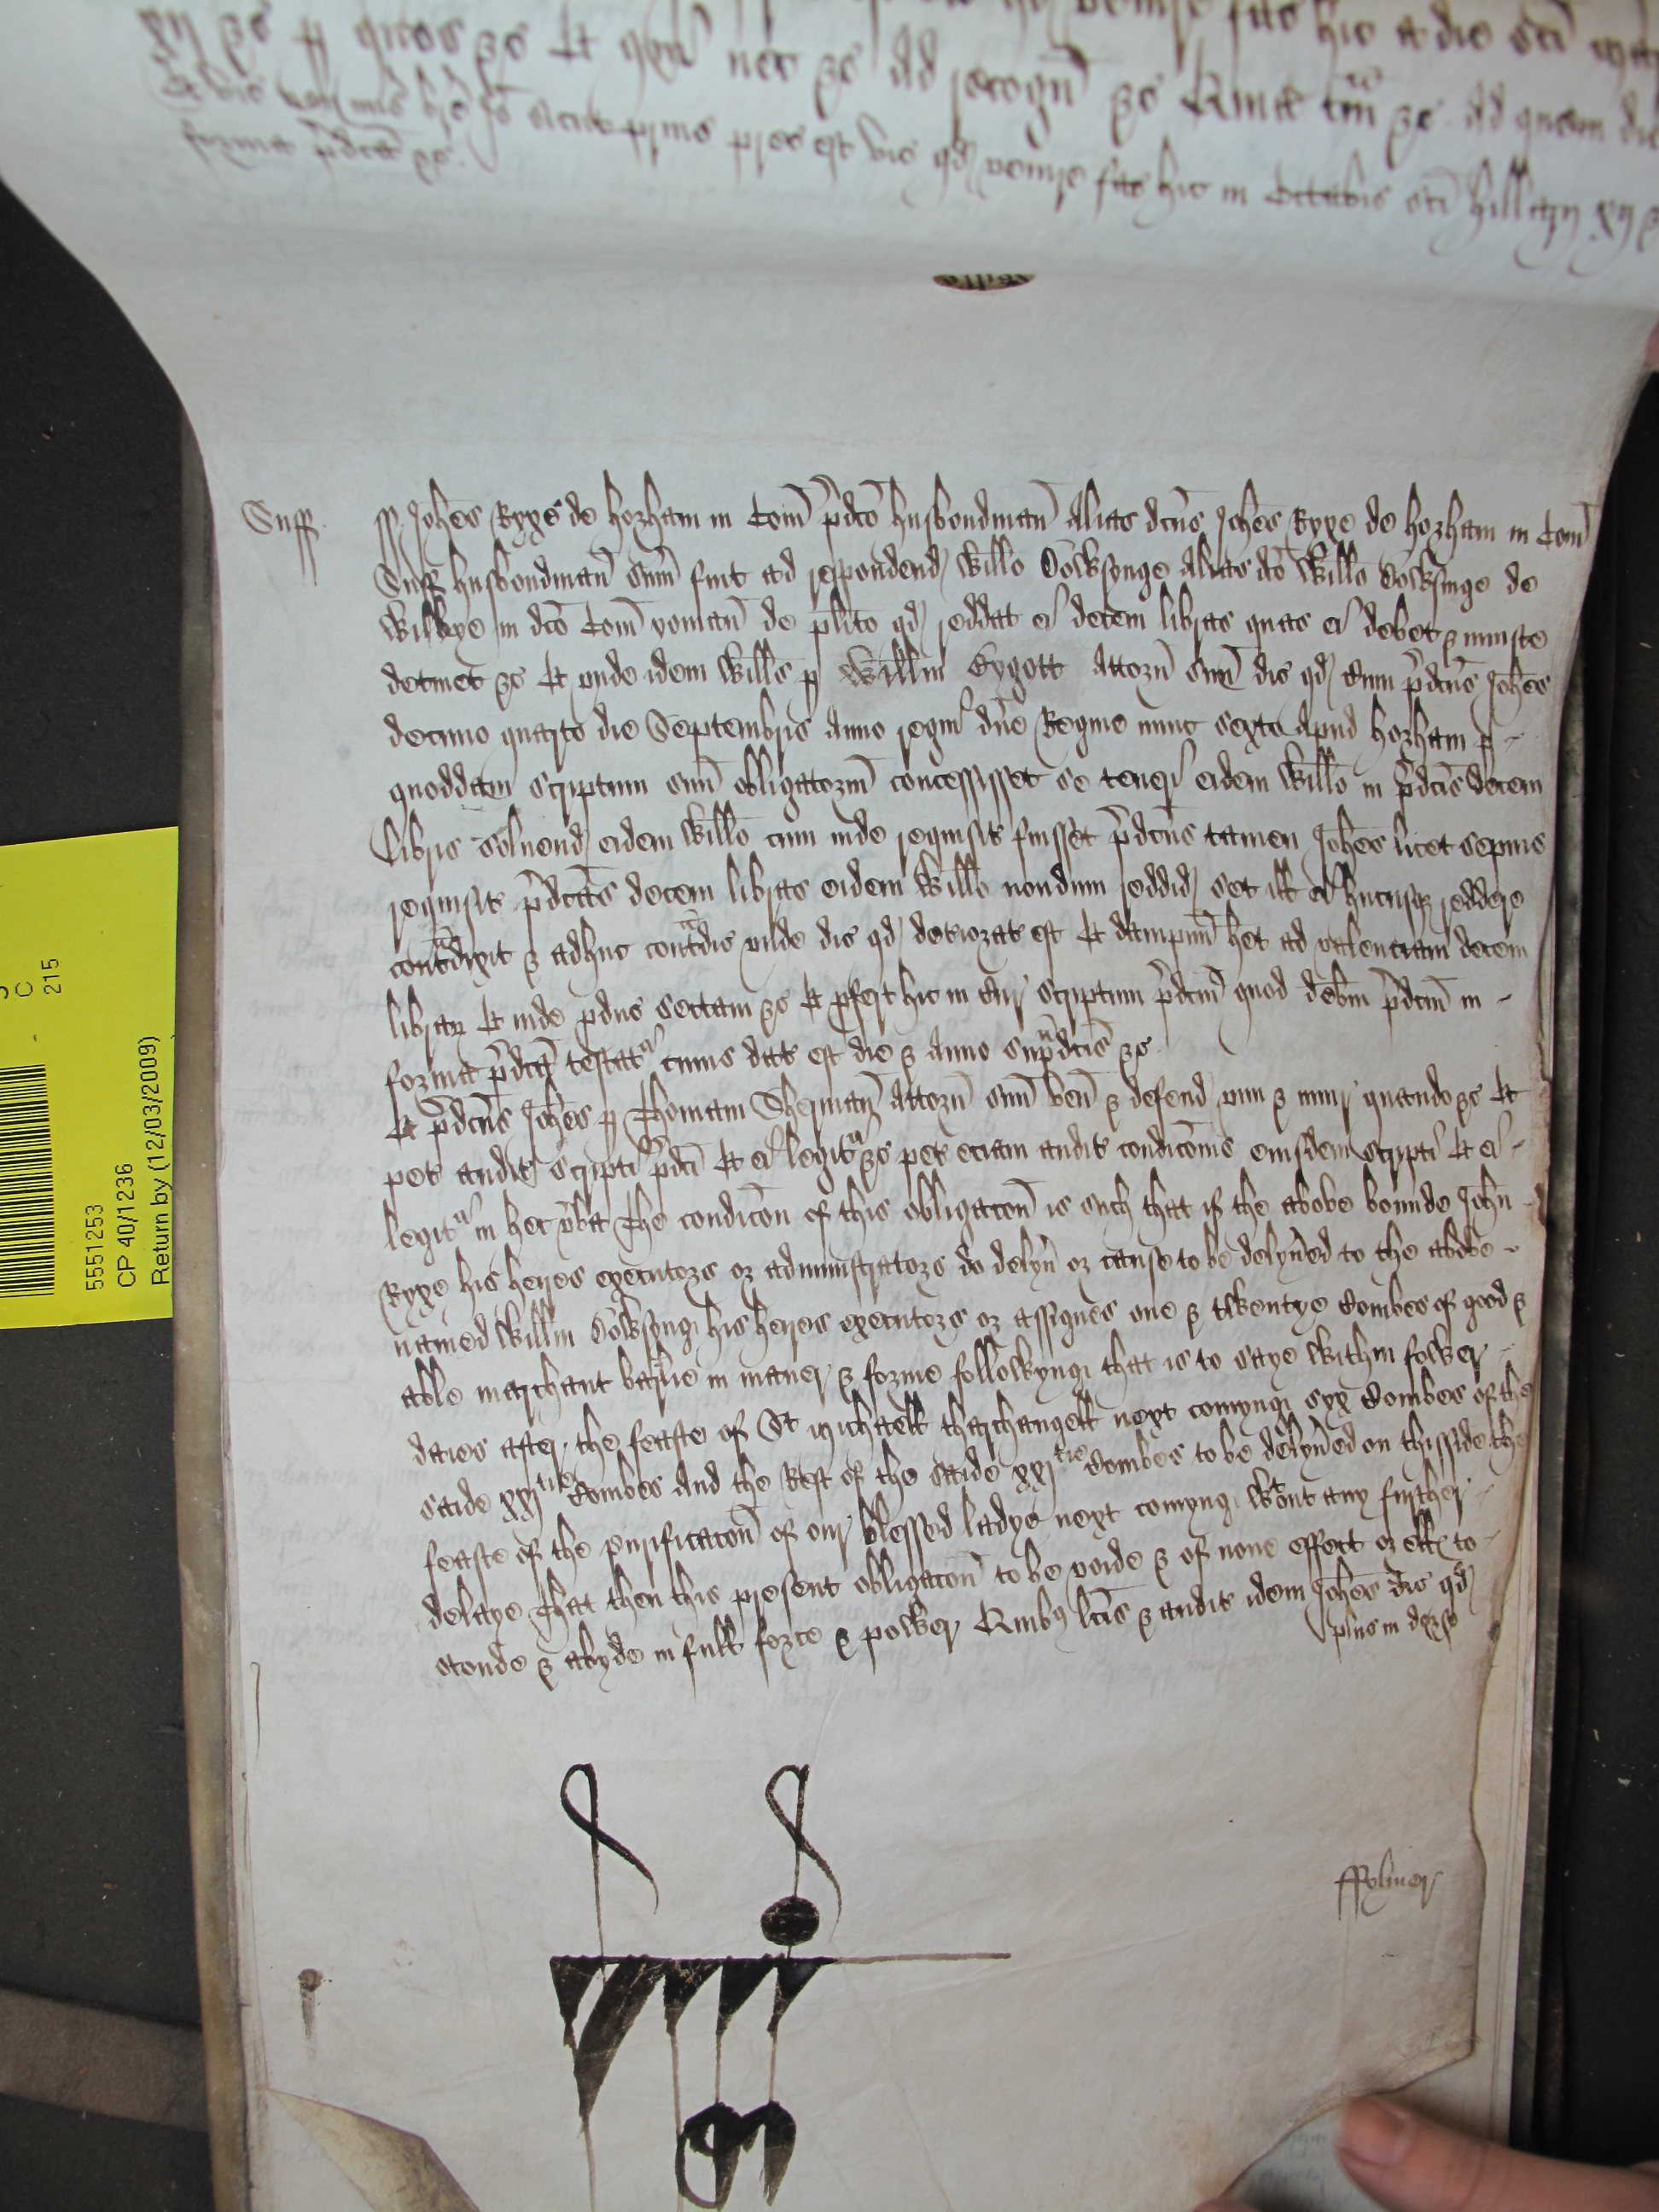 xij &c p quos &c Et qui nec &c Ad recogn &c Quia tam &c Ad quem diem
forma pdca &c.
Suff
ss Johes Ryxe de Horham in Com pdco husbondman Alias dcus Johes Ryxe de Horham in Com
Suff husbondman sum fuit ad respondend Willo Dowsynge Alias dco Willo Dowsinge de
Wilbye in dco Com yoman de plito qd reddat ei decem libras quas ei debet & iniuste
detinet &c Et unde idem Wills p Willm Bygott Attorn suu dic qd Cum pdcus Johes
decimo quarto die Septembris Anno regni dne Regine nunc sexto Apud Horham p
quoddam scriptum suu obligatorm concessisset se teneri eidem Willo in pdcis decem
libris Solvend eidem Willo cum inde requisit fuisset pdcus tamen Johes licet sepius
requisit pdcas decem libras eidem Willo nondum reddid Set ill ei hucusq reddere
contradixit & adhuc contradic unde dic qd deteriorat est Et dampnum het ad valenciam decem
librar Et inde pduc sectam &c Et pfert hic in Cur scriptum pdcm quod debm pdcm in
forma pdca testat cuius dat est die & Anno supradcis &c.
Et pdcus Johes p Thomam Sherman Attorn suu ven & defend vim & iniur quando &c Et
pet audit scripti pdci Et ei legit &c pet eciam audit condicois eiusdem scripti Et ei
legit in hec vba The condicon of this obligacon is such that if the above bounde John
Ryxe his heyres executors or administrators do delyv or cause to be delyved to the above
named Willm Dowsyng his heyres executors or assignes one & twentye Combes of good &
able marchant barlie in maner & forme followyng that is to saye within fower
daies after the feaste of St Michaell tharchangell next comyng syx Combes of the
saide xxj tie Combes And the Rest of the saide xxj tie Combes to be delyved on thisside the
feaste of the purificacon of our blessed ladye next comyng wtout any further
delaye That then this present obligacon to be voide & of none effect or ells to
stonde & abyde in full force & power Quibus lcis & audit idem Johes dic qd
plus in dorso
ffylmer
5551253
CP 40/1236
Return by (12/03/2009)
C
215